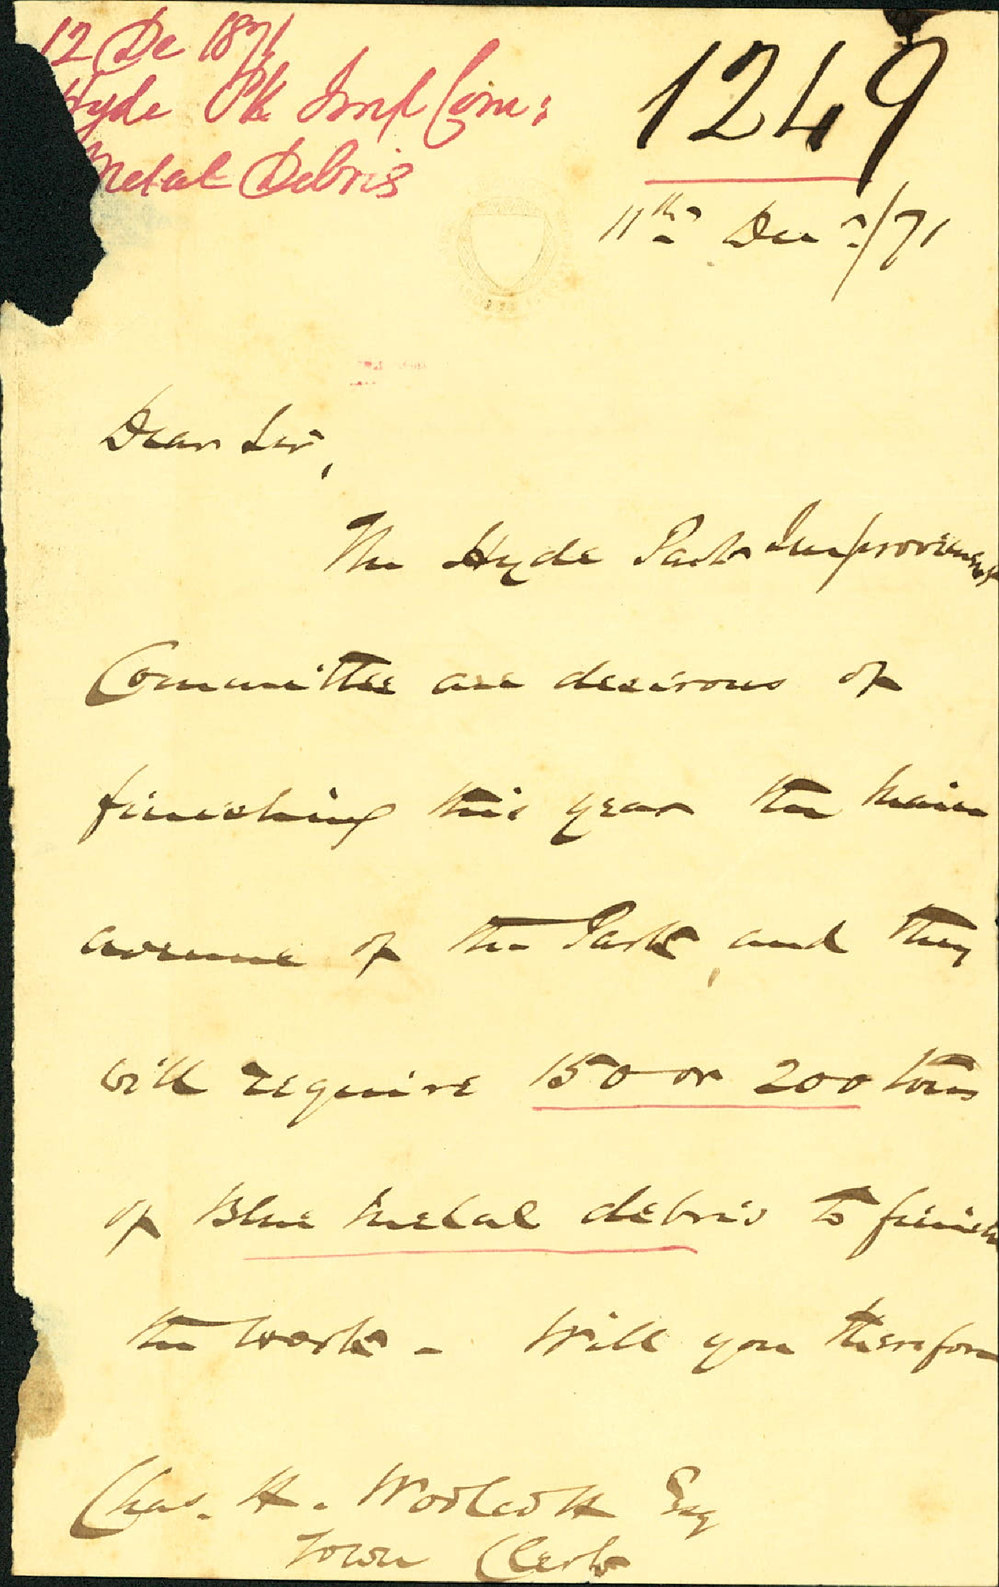 12 De 1871
Hyde Pk Imp Com:
Metal Debris
1249
11th Dec /71
Dear Sir,
The Hyde Park Improvement
Committee are desirous of
finishing this year the main
avenue of the Park, and they
will require 150 or 200 tons
of Blue metal debris to finish
the work - Will you therefore
Chas. H. Woolcott Esq
Town Clerk